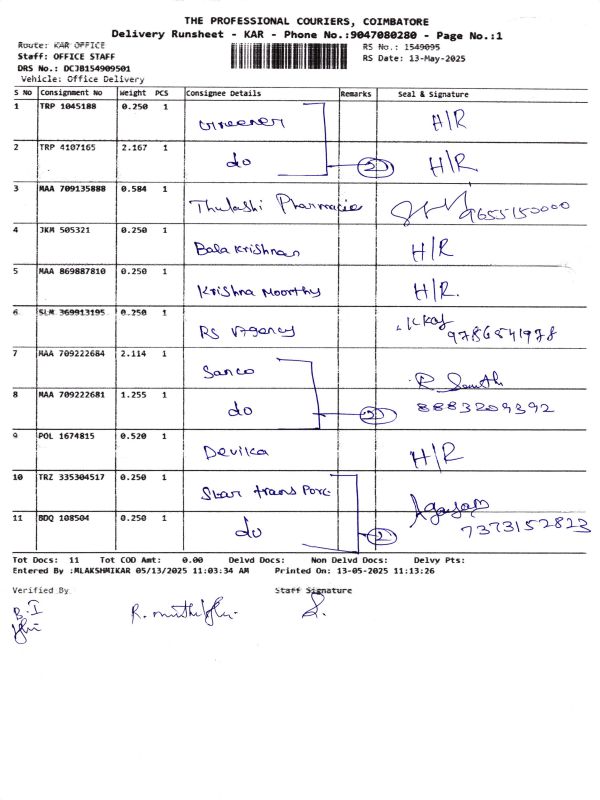 THE PROFESSIONAL COURIERS, COIMBATORE
Delivery Runsheet - KAR - Phone No.:9047080280 - Page No.:1
Route: KAR OFFICE
RS No.: 1549095
Staff: OFFICE STAFF
RS Date: 13-May-2025
DRS No.: DCJB154909501
Vehicle: Office Delivery
S NO Consignment No Weight PCS Consignee Details Remarks Seal & Signature
1 TRP 1045188 0.250 1 Greener H/R
2 TRP 4107165 2.167 1 do 2 H/R
3 MAA 709135888 0.584 1 Thulashi Pharmacie 9655150000
4 JKM 505321 0.250 1 Bala Krishnan H/R
5 MAA 869887810 0.250 1 Krishna Moorthy H/R.
6 SLM 369913195 0.250 1 RS Agency 9786541978
7 MAA 709222684 2.114 1 Sanco
8 MAA 709222681 1.255 1 do 2 8883209392
9 POL 1674815 0.520 1 Devika H/R
10 TRZ 335304517 0.250 1 Star trans Porc
11 BDQ 108504 0.250 1 do 2 7373152823
Tot Docs: 11 Tot COD Amt: 0.00 Delvd Docs: Non Delvd Docs: Delvy Pts:
Entered By :MLAKSHMIKAR 05/13/2025 11:03:34 AM Printed On: 13-05-2025 11:13:26
Verified By Staff Signature